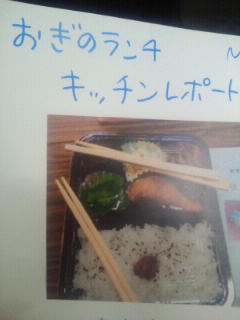 おぎのランチ
キッチンレポート